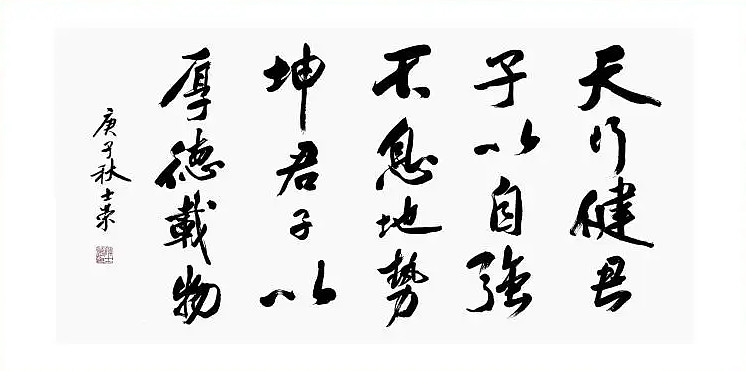 天行健君
子以自強
不息地勢
坤君子以
厚德載物
庚子秋士荣